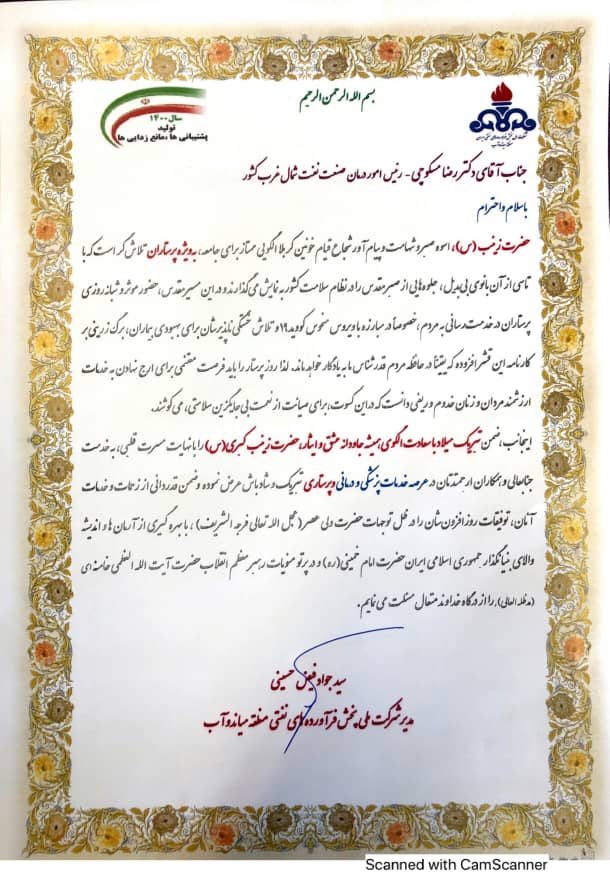 بسم الله الرحمن الرحیم
سال ۱۴۰۰
تولید
پشتیبانی ها، مانع زدایی ها
جناب آقای دکتر رضا مسکوچی - رئیس امور درمان صنعت نفت شمال غرب کشور
باسلام و احترام
حضرت زینب (س)، اسوه صبر و شهامت و پیام آور شجاع قیام خونین کربلا الگویی ممتاز برای جامعه، به ویژه پرستاران تلاش گر است که با
تاسی از آن بانوی بی بدیل، جلوه هایی از صبر مقدس را در نظام سلامت کشور به نمایش می گذارند و در این مسیر مقدس، حضور موثر و شبانه روزی
پرستاران در خدمت رسانی به مردم، خصوصاً در مبارزه با ویروس منحوس کووید ۱۹ و تلاش خستگی ناپذیرشان برای بهبودی بیماران، برگ زرینی بر
کارنامه این قشر افزوده که یقیناً در حافظه مردم قدرشناس ما به یادگار خواهد ماند. لذا روز پرستار را باید فرصت مغتنمی برای ارج نهادن به خدمات
ارزشمند مردان و زنان خدوم و بی دانست که در این کسوت، برای صیانت از نعمت بی جایگزین سلامتی، می کوشند.
اینجانب، ضمن تبریک میلاد با سعادت الگوی همیشه جاودانه عشق و ایثار، حضرت زینب کبری (س) را با نهایت مسرت قلبی، به خدمت
جنابعالی و همکاران ارجمندتان در عرصه خدمات پزشکی و درمانی و پرستاری تبریک و شادباش عرض نموده و ضمن قدردانی از زحمات و خدمات
آنان، توفیقات روز افزون شان را در ظل توجهات حضرت ولی عصر (عجل الله تعالی فرجه الشریف)، با بهره گیری از آرمان ها و اندیشه
والای بنیانگذار جمهوری اسلامی ایران حضرت امام خمینی (ره) و در پرتو منویات رهبر معظم انقلاب حضرت آیت الله العظمی خامنه ای
(مدظله العالی)، را از درگاه خداوند متعال مسئلت می نمایم.
سید جواد فیض حسینی
مدیر شرکت ملی پخش فرآورده های نفتی منطقه میاندوآب
Scanned with CamScanner